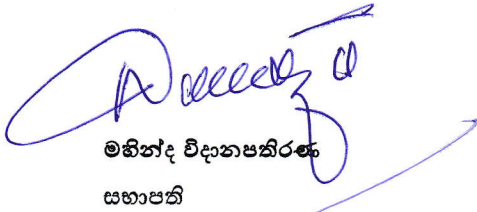 මහින්ද විදානපතිරණ
සභාපති